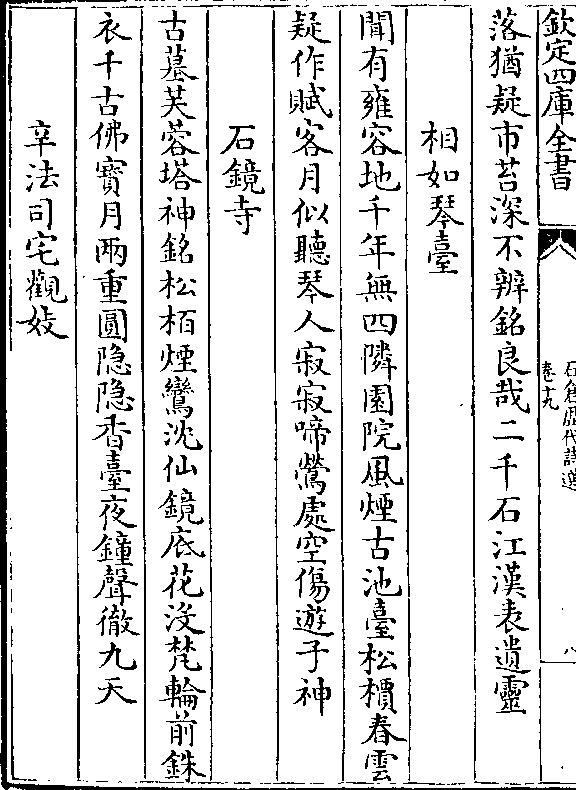 欽定四庫全書
石倉歷代詩選
卷十九
八
落猶疑市苔深不辨銘良哉二千石江漢表遺靈
相如琴臺
聞有雍容地千年無四隣園院風煙古池臺松檟春雲
疑作賦客月似聽琴人寂寂啼鶯處空傷遊子神
石鏡寺
古墓芙蓉塔神銘松栢煙鸞沈仙鏡底花沒梵輪前銖
衣千古佛寶月兩重圓隐隐香臺夜鐘聲徹九天
辛法司宅觀妓